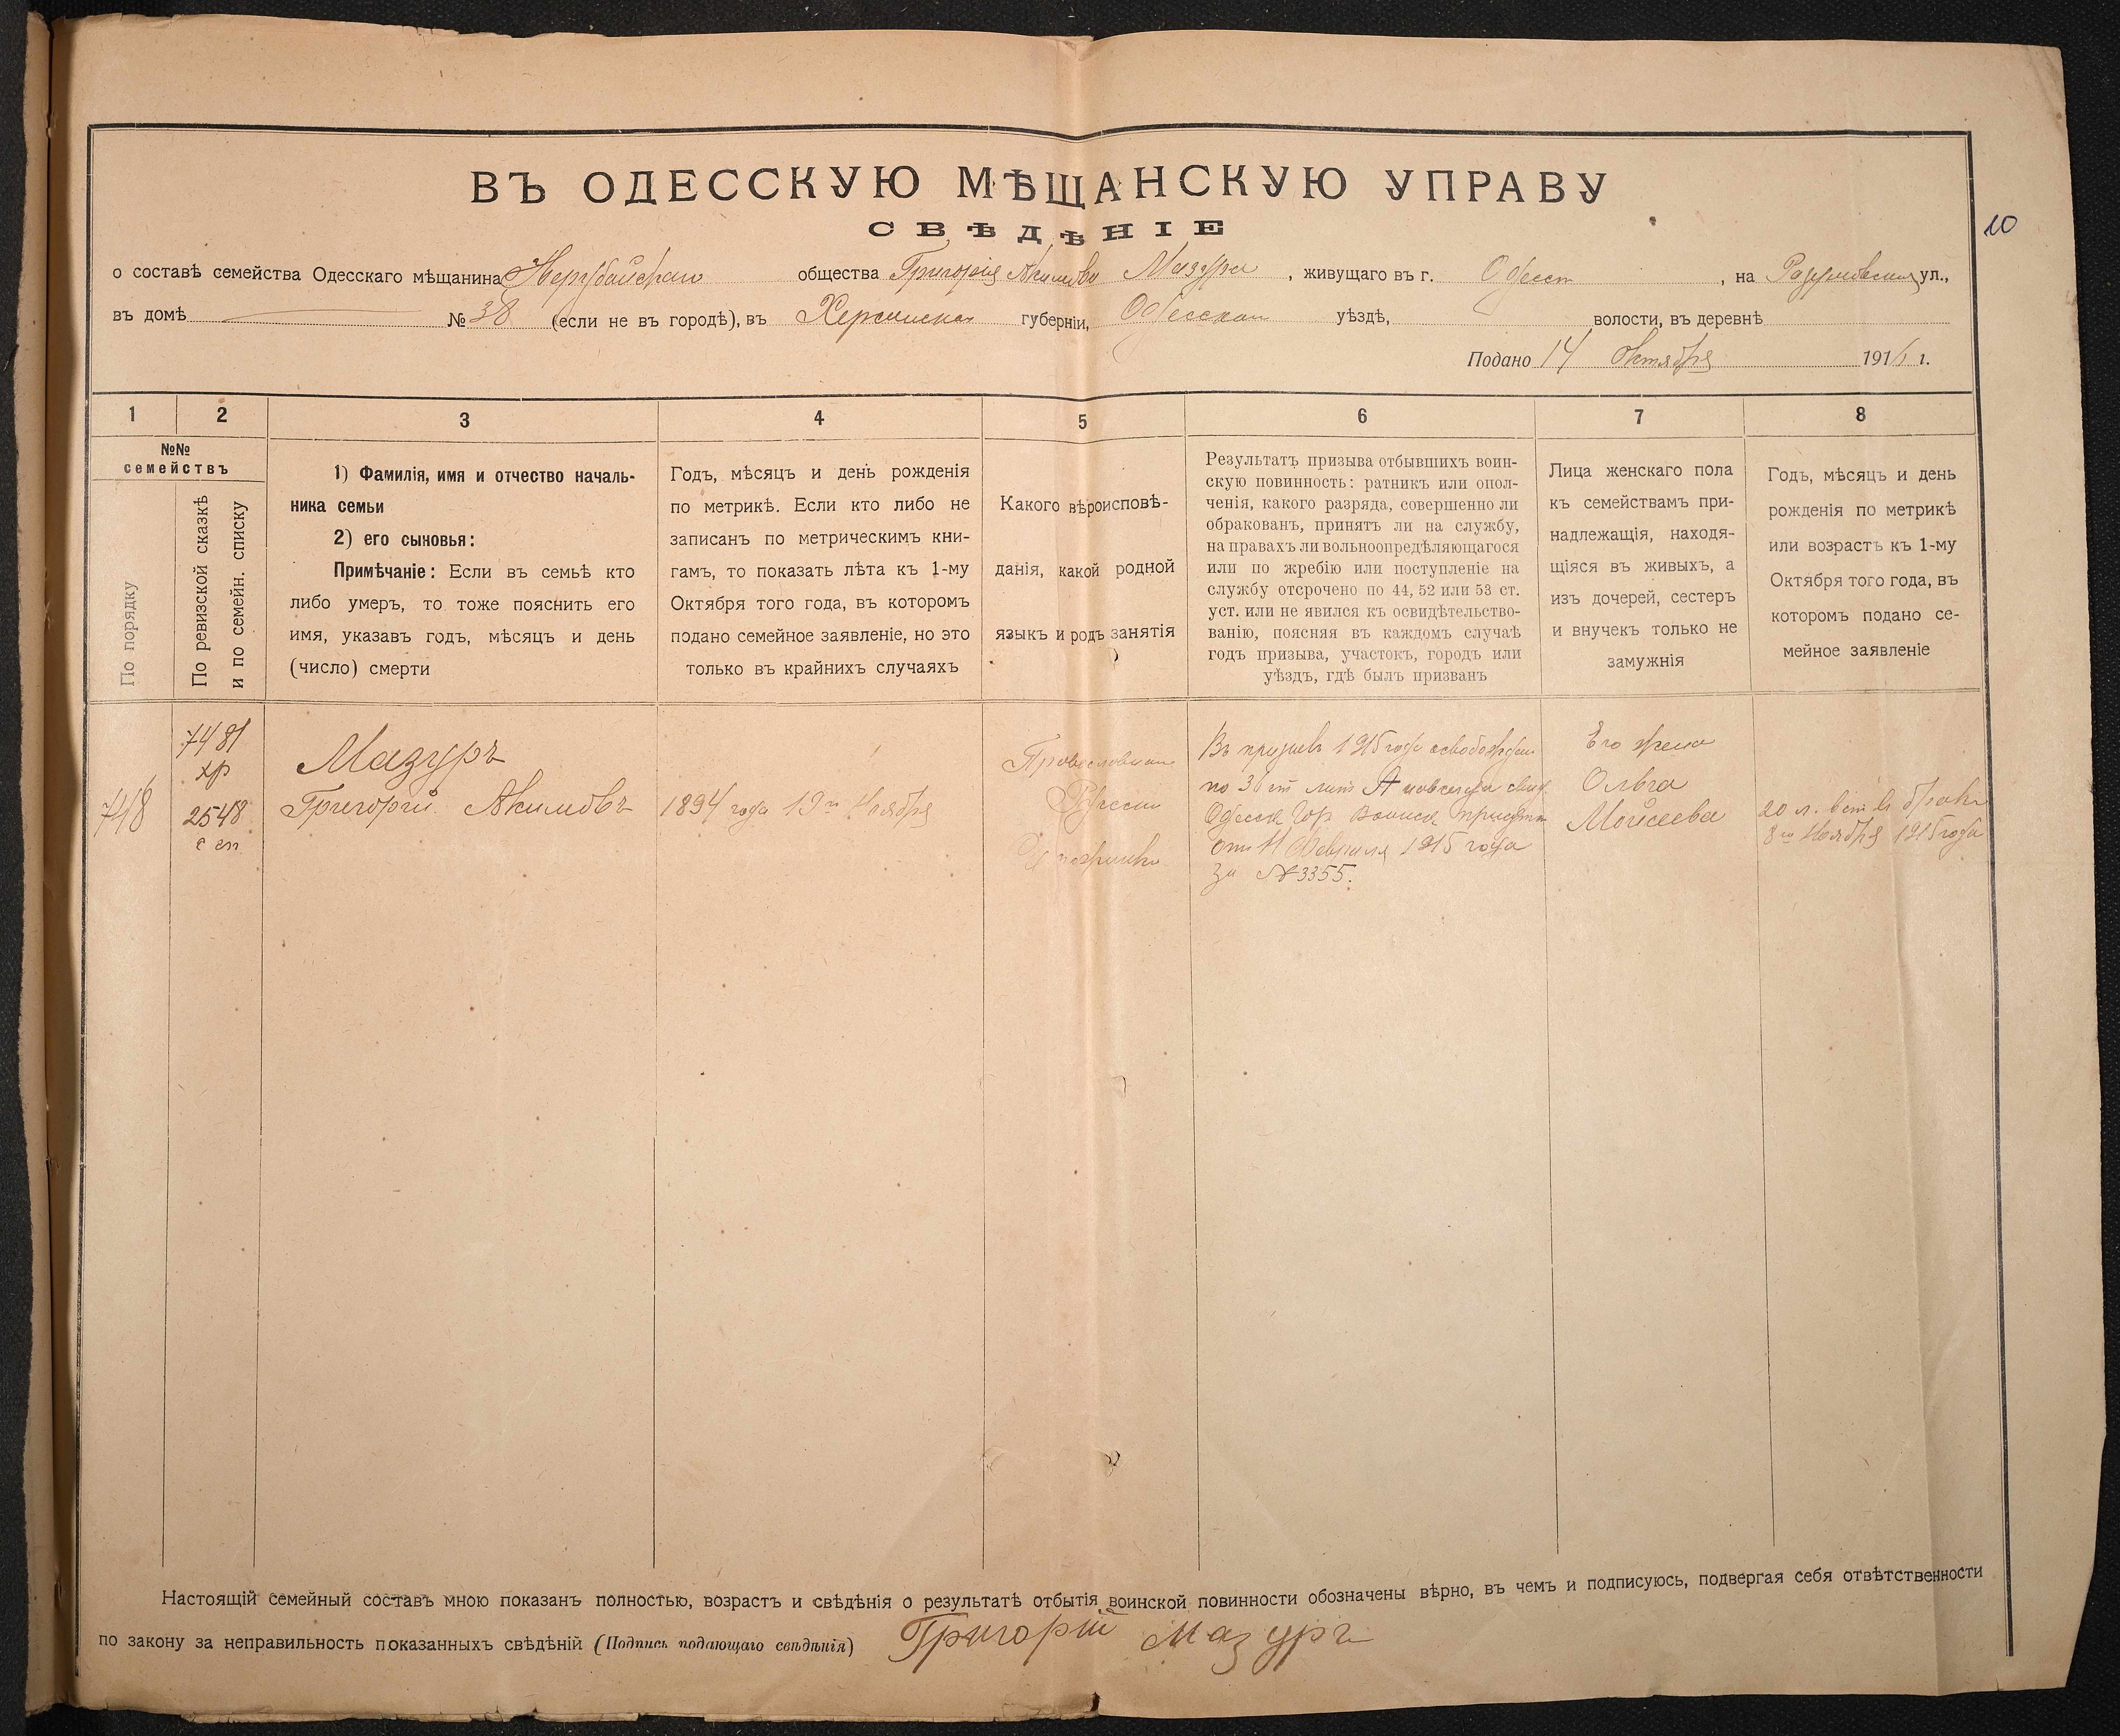 ВЪ ОДЕССКУЮ МѢЩАНСКУЮ УПРАВУ
СВѢДѢНІЕ
10
о составѣ семейства Одесскаго мѣщанина Нерубайскаго общества Григорія Акимова Мазура, живущаго въ г. Одессѣ, на Разумовской ул.,
въ домѣ № 38 (если не въ городѣ), въ Херсонской губерніи, Одесскаго уѣздѣ, волости, въ деревнѣ
Подано 14 Октября 1916 г.
1 2 3 4 5 6 7 8
№№
семействъ
По порядку
По ревизской сказкѣ
и по семейн. списку
1) Фамилія, имя и отчество началь-
ника семьи
2) его сыновья:
Примѣчаніе: Если въ семьѣ кто
либо умеръ, то тоже пояснить его
имя, указавъ годъ, мѣсяцъ и день
(число) смерти
Годъ, мѣсяцъ и день рожденія
по метрикѣ. Если кто либо не
записанъ по метрическимъ кни-
гамъ, то показать лѣта къ 1-му
Октября того года, въ которомъ
подано семейное заявленіе, но это
только въ крайнихъ случаяхъ
Какого вѣроисповѣ-
данія, какой родной
языкъ и родъ занятія
Результатъ призыва отбывшихъ воин-
скую повинность: ратникъ или опол-
ченія, какого разряда, совершенно ли
обракованъ, принятъ ли на службу,
на правахъ ли вольноопредѣляющагося
или по жребію или поступленіе на
службу отсрочено по 44, 52 или 53 ст.
уст. или не явился къ освидѣтельство-
ванію, поясняя въ каждомъ случаѣ
годъ призыва, участокъ, городъ или
уѣздъ, гдѣ былъ призванъ
Лица женскаго пола
къ семействамъ при-
надлежащія, находя-
щіяся въ живыхъ, а
изъ дочерей, сестеръ
и внучекъ только не
замужнія
Годъ, мѣсяцъ и день
рожденія по метрикѣ
или возрастъ къ 1-му
Октября того года, въ
которомъ подано се-
мейное заявленіе
748
7481
хр
2548
с сп
Мазуръ
Григорій Акимовъ
1894 года 19го Ноября
Православнаго
Русскій
Въ призывъ 1915 года освобожден
по 36 ст лит А
Одесск Гор Воинск Присутств
отъ 11 Февраля 1915 года
за №3355.
Его жена
Ольга
Моисеева
20 л. вст въ бракъ
8го Ноября 1915 года
Настоящій семейный составъ мною показанъ полностью, возрастъ и свѣдѣнія о результатѣ отбытія воинской повинности обозначены вѣрно, въ чемъ и подписуюсь, подвергая себя отвѣтственности
по закону за неправильность показанныхъ свѣдѣній (Подпись подающаго свѣдѣнія) Григорій Мазуръ